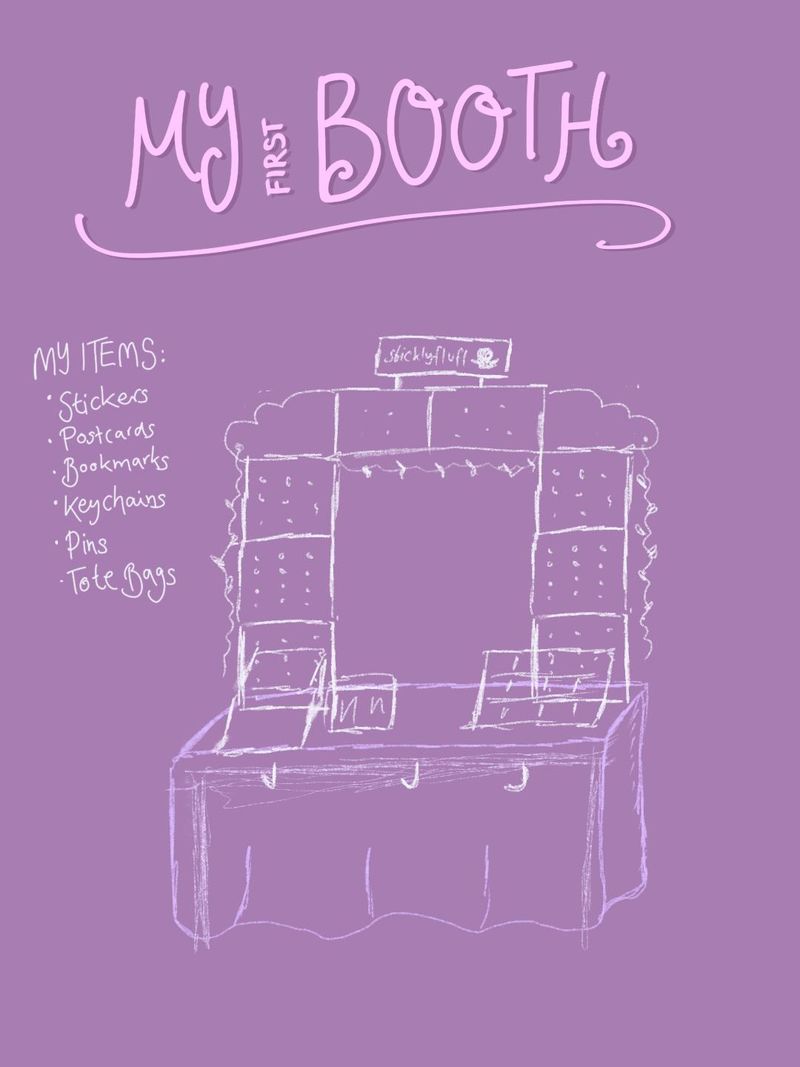 MY FIRST BOOTH
MY ITEMS:
• Stickers
• Postcards
• Bookmarks
• Keychains
• Pins
• Tote Bags
sticklyfluff